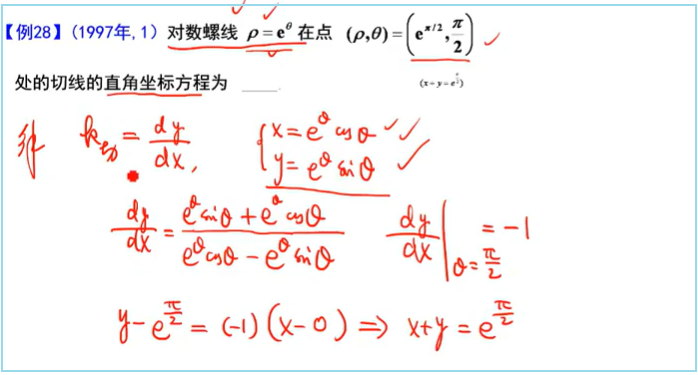 【例28】(1997年,1) 对数螺线 ρ=e^θ 在点 (ρ,θ)=(e^{π/2}, π/2)
处的切线的直角坐标方程为 ____.
(x+y=e^{π/2})
解 k切 = dy/dx, { x=e^θ cosθ
y=e^θ sinθ
dy/dx = (e^θ sinθ + e^θ cosθ)/(e^θ cosθ - e^θ sinθ) dy/dx|θ=π/2 = -1
y-e^{π/2} = (-1)(x-0) ⇒ x+y=e^{π/2}